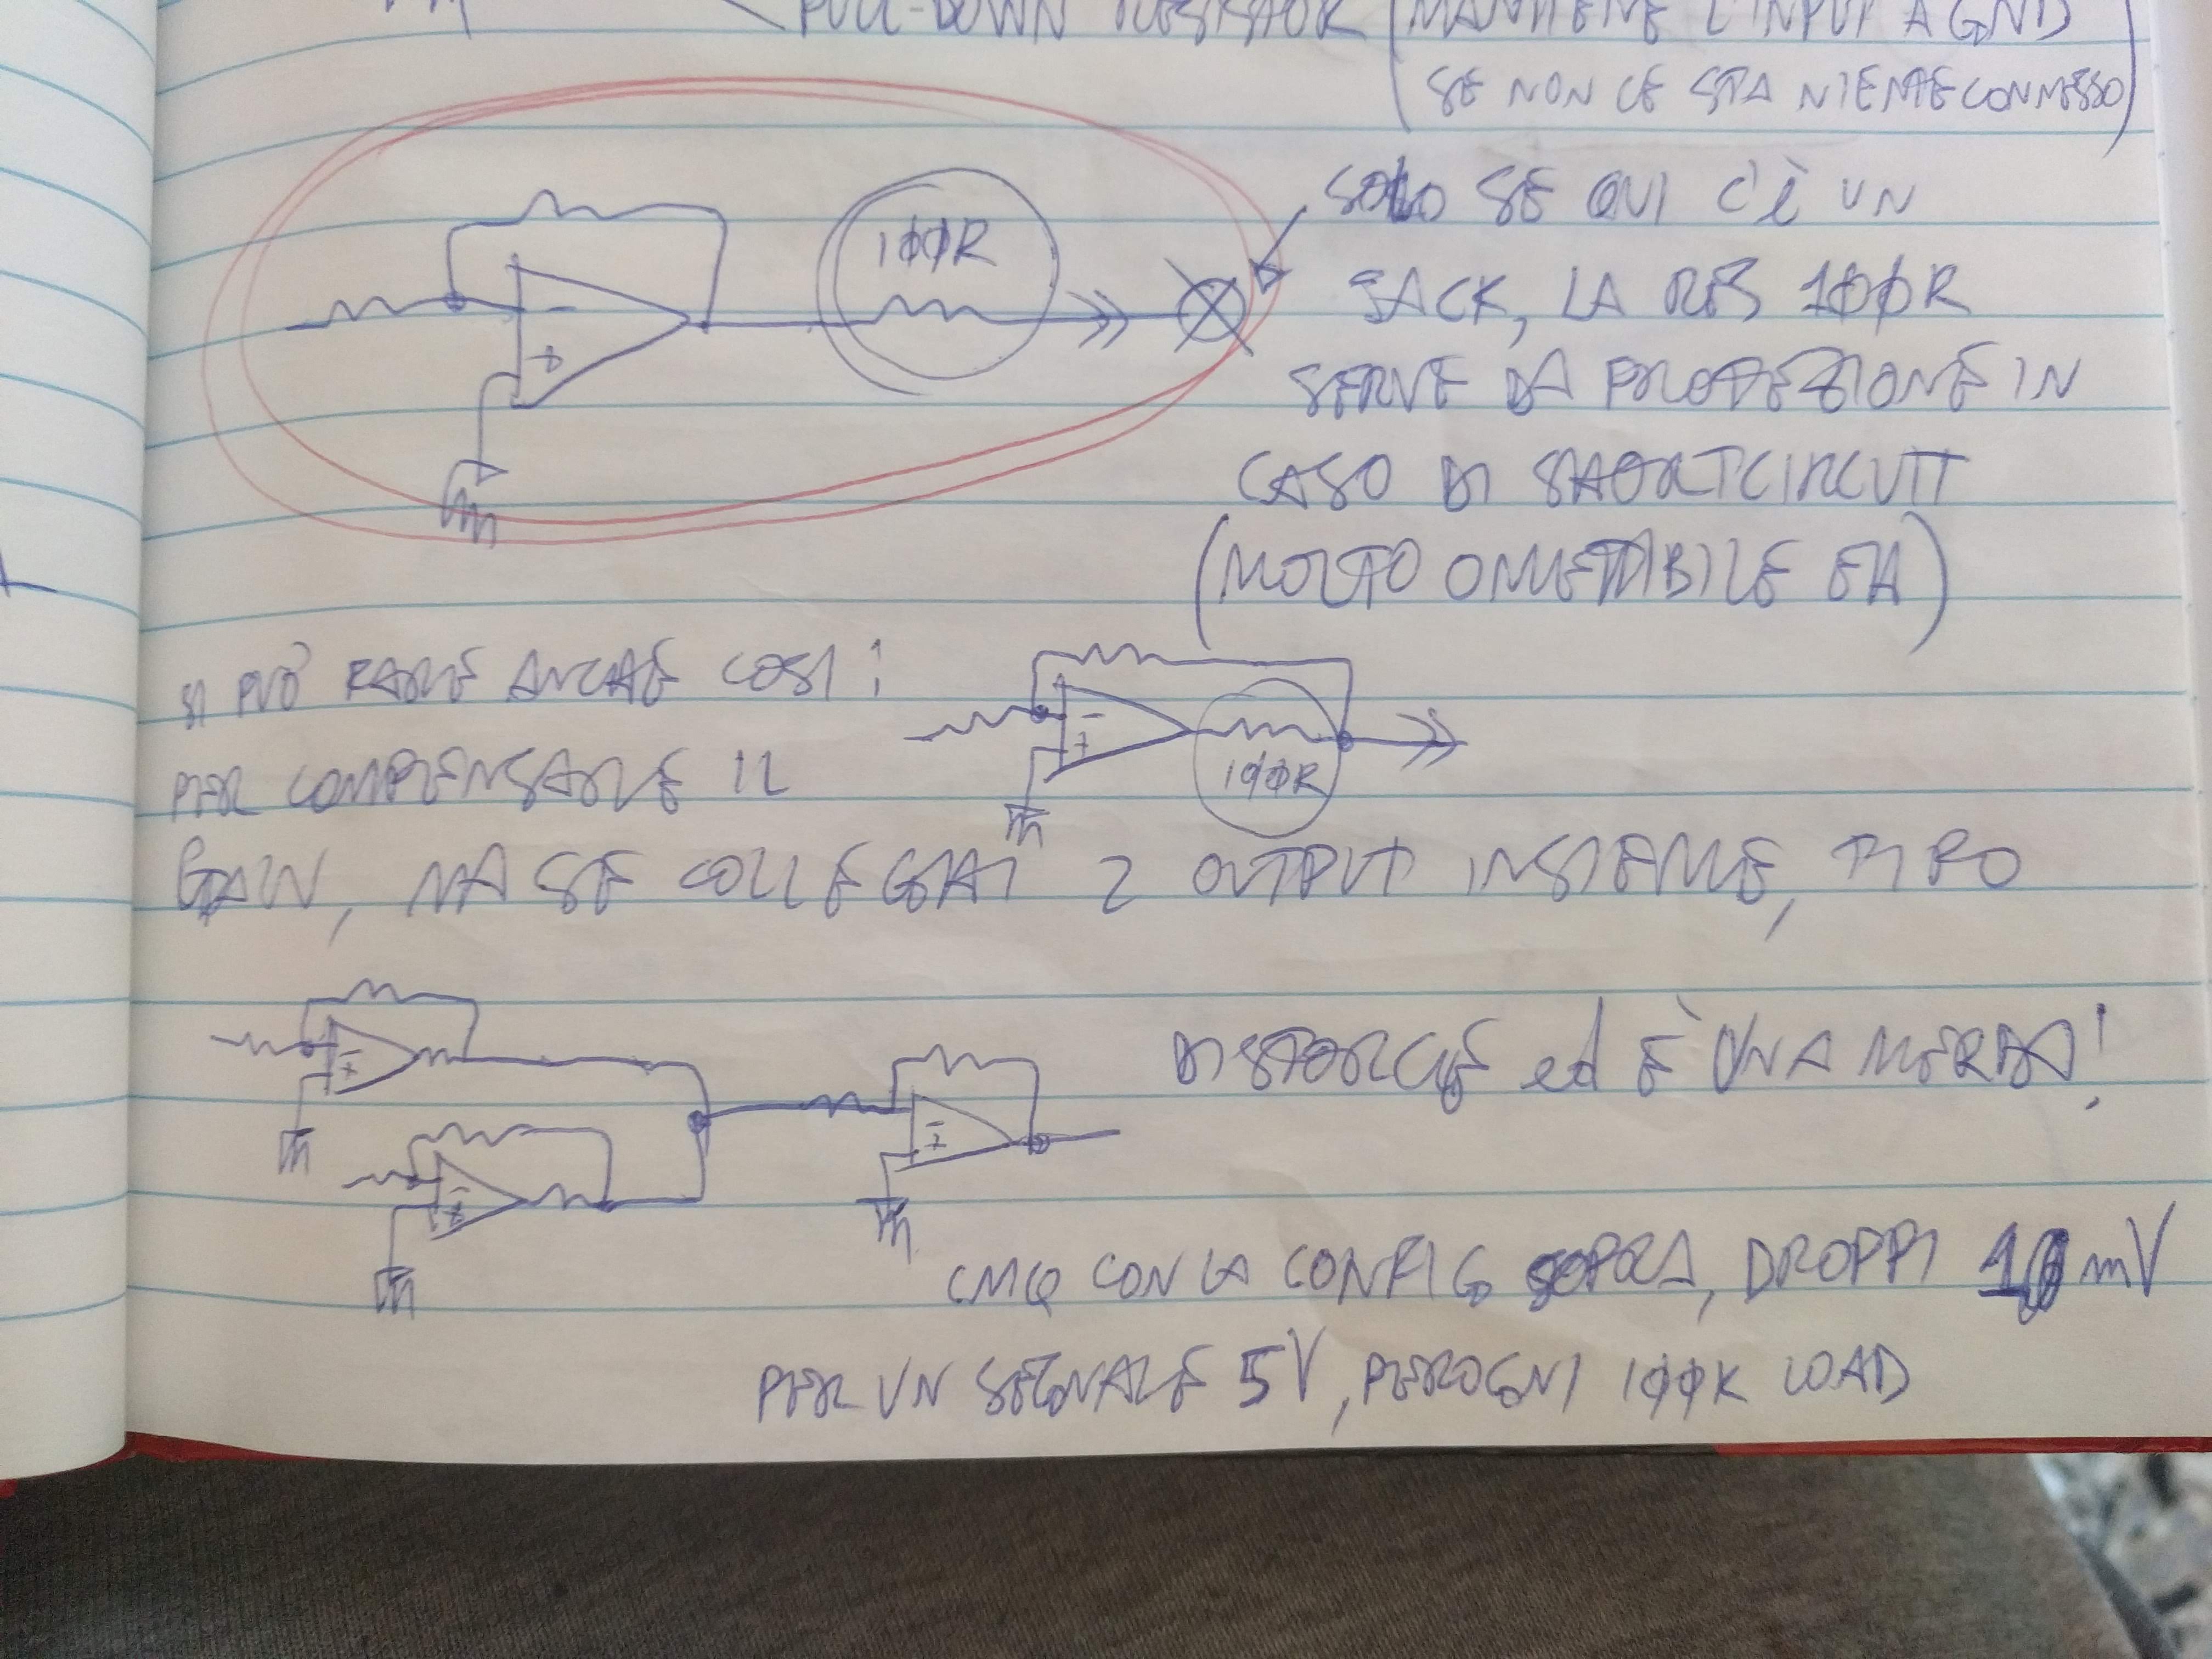 PULL-DOWN RESISTOR (MANTIENE L'INPUT A GND
SE NON CE STA NIENTE CONNESSO)
SOLO SE QUI C'È UN
100R
JACK, LA RES 100R
SERVE DA PROTEZIONE IN
CASO DI SHORTCIRCUIT
(MOLTO OMETTIBILE EH)
SI PUÒ FARE ANCHE COSI:
PER COMPENSARE IL
100R
GAIN, MA SE COLLEGHI 2 OUTPUT INSIEME, TIPO
DISTORCE ed È UNA MERDA!
CMQ CON LA CONFIG SOPRA, DROPPI 10mV
PER UN SEGNALE 5V, PER OGNI 100K LOAD